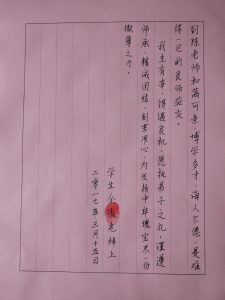 到陈老师和蔼可亲,博学多才,诲人不倦,是难
得一见的良师益友。
我生有幸,得遇良机,愿执弟子之礼,谨遵
师承,精诚团结,刻苦用心,为发扬中华瑰宝尽一份
微薄之力。
学生:余 龙拜上
二零一七年三月十五日